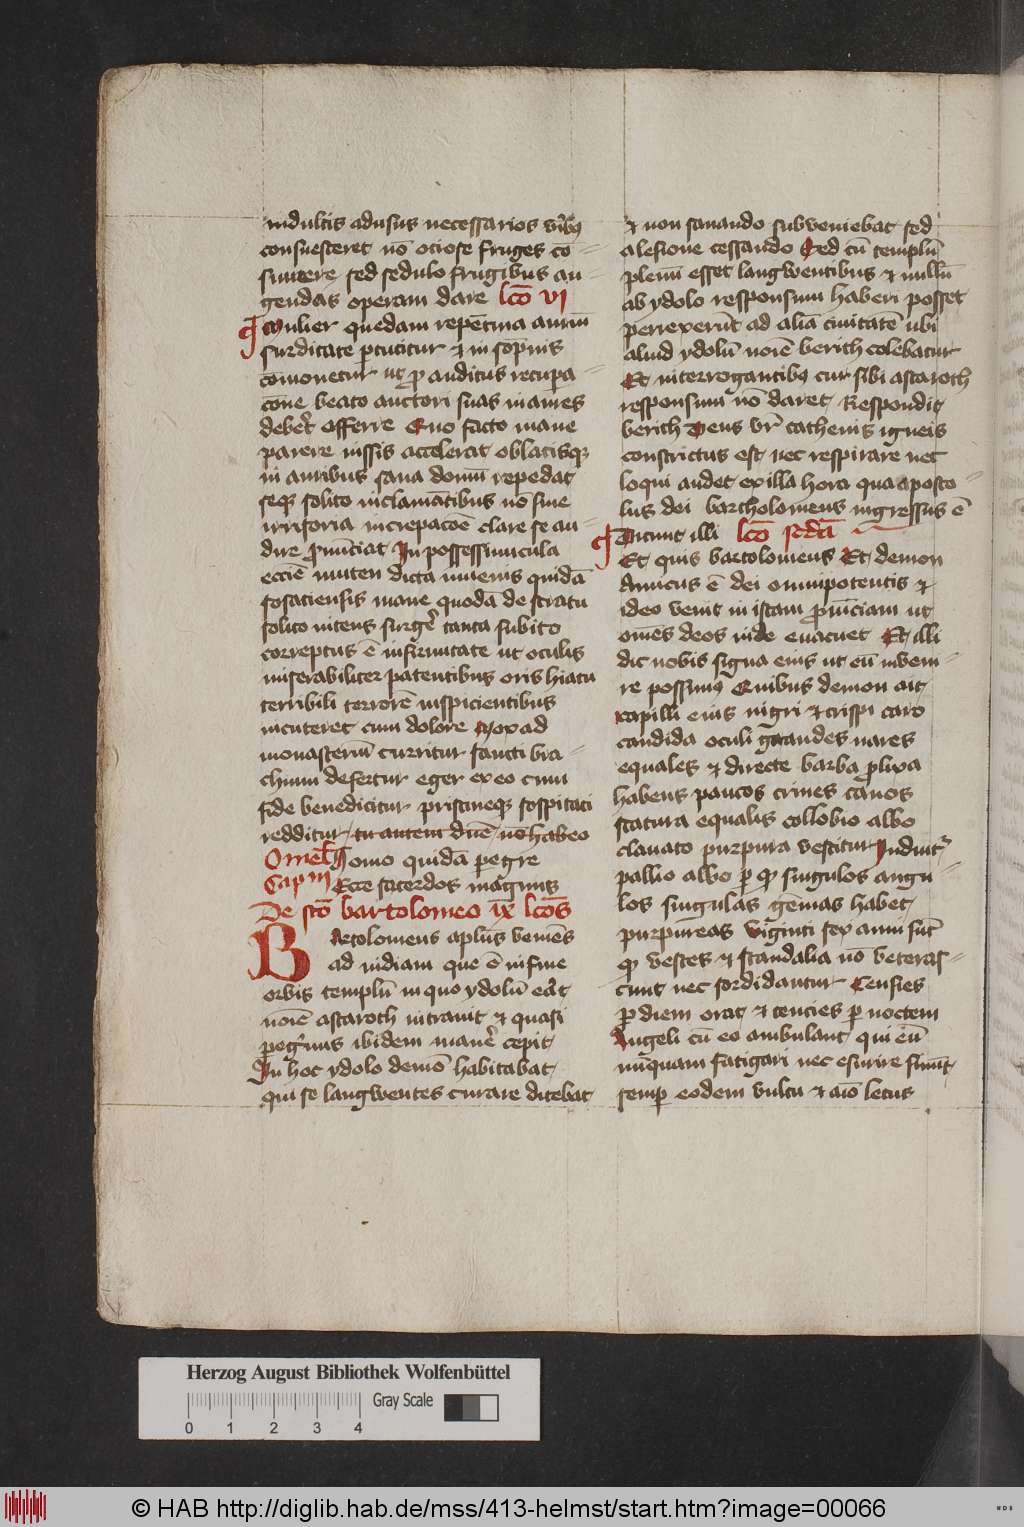 indultis adusus necessarios viribꝫ
consuesceret nō ociose fruges cō-
sumere sed sedulo frugibus au-
gendas operam dare lcō vi
Mulier quedam repētina aurium
surditate ꝑcutitur ⁊ in sopnis
cōmonetur ut ꝓ auditus recupa-
cōne beato auctori suas manus
debet offerre Quo facto mane
parere iussis accelerat oblatisqꝫ
in auribus sana domū repedat
seqꝫ solito inclamātibus nō sine
irrisoria increpacōe clare se au-
dire ꝓnūciat In possessiuncula
eccīe muten dicta iuuenis quidā
fosatiensis mane quodā de stratu
solito nitens surgere tanta subito
correptus ē infirmitate ut oculis
miserabiliter patentibus oris hiatu
terribili terrorē inspicientibus
incuteret cum dolore Mox ad
monasteriū curritur sancti bra-
chium defertur eger ex eo cum
fide benedicitur pristineqꝫ sospitati
redditur tu autem dn̄e nō habeo
Omel Homo quidā pegre
Cap m Ecce sacerdos magnus
De sctō bartolomeo ix lcōs
Bartolomeus apl̄us veniēs
ad indiam que ē in fine
orbis templū in quo ydolū erat
noīe astaroth intrauit ⁊ quasi
peregrinus ibidem manere cepit
In hoc ydolo demō habitabat
qui se langwentes curare dicebat
⁊ non sanando subveniebat sed
alesione cessando Sed cū templū
plenū esset langwentibus ⁊ nullū
ab ydolo responsum haberi posset
perrexerūt ad aliā ciuitatē ubi
aliud ydolū noīe berith colebatur
Et interrogantibꝫ cur sibi astaroth
responsum nō daret Respondit
berith Deus vr̄ cathenis igneis
constrictus est nec respirare nec
loqui audet ex illa hora qua aposto-
lus dei bartholomeus ingressus ē
Dicunt illi lcō scdā
Et quis bartolomeus Et demon
Amicus ē dei omnipotentis ⁊
ideo venit in istam ꝓuīciam ut
omēs deos inde euacuet Et illi
dic nobis signa eius ut eū inveni-
re possimꝰ Quibus demon ait
Capilli eius nigri ⁊ crispi caro
candida oculi grandes nares
equales ⁊ directe barba ꝓlixa
habens paucos crines canos
statura equalis collobio albo
clauato purpura vestitur Induitʳ
pallio albo ꝑ qꝫ singulos angu-
los singulas gemas habet
purpureas viginti sex anni sūt
qꝫ vestes ⁊ scandalia nō veteras-
cunt nec sordidantur Censies
ꝑ diem orat ⁊ cencies ꝑ noctem
Angeli cū eo ambulant qui eū
nūquam fatigari nec esurire sinūt
semꝑ eodem vultu ⁊ aīo letus
Herzog August Bibliothek Wolfenbüttel
Gray Scale
0 1 2 3 4
© HAB http://diglib.hab.de/mss/413-helmst/start.htm?image=00066